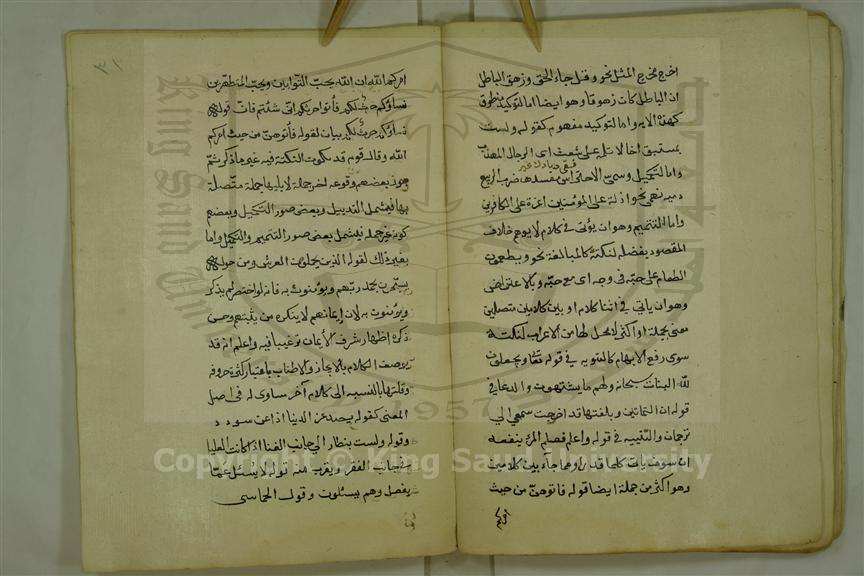 اخرج مخرج المثل نحو وقل جاء الحق وزهق الباطل
ان الباطل كان زهوقا وهو ايضا اما لتوكيد منطوق
كهذه الاية واما لتوكيد مفهوم كقوله ولست
بمستبق اخا لا تلمه على شعث اى الرجال المهذب
واما التكميل وسمى الاحتراس فسقى ديارك غير مفسدها صوب الربيع
وديمة تهمي نحو اذلة على المؤمنين اعزة على الكافرين
واما التتميم وهو ان يؤتى في كلام لا يوهم خلاف
المقصود بفضلة لنكتة كالمبالغة نحو ويطعمون
الطعام على حبه في وجه اى مع حبه وبالاعتراض
وهو ان ياتي في اثنا كلام او بين كلامين متصلين
معنى بجملة او اكثر لا محل لها من الاعراب لنكتة
سوى رفع الابهام كالتنويه في قوله تعا ويجعلون
لله البنات سبحانه ولهم ما يشتهون والدعا في
قوله ان الثمانين وبلغتها قد احوجت سمعي الي
ترجمان والتنبيه في قوله واعلم فعلم المرء ينفعه
ان سوف يات كلما قدرا ومما جاء بين كلامين
وهو اكثر من جملة ايضا قوله فاتوهن من حيث
امركم
٣١
امركم الله ان الله يحب التوابين ويحب المتطهرين
نساؤكم حرث لكم فأتوا حرثكم انى شئتم فان قوله
نساؤكم حرث لكم بيان لقوله فأتوهن من حيث امركم
الله وقال قوم قد تكون النكتة فيه غير ما ذكر ثم
جوز بعضهم وقوعه اخر جملة لا يليها جملة متصلة
بها فيشمل التذييل وبعض صور التكميل وبعضهم
كونه غير جملة فيشمل بعض صور التتميم والتكميل واما
بغير ذلك لقوله الذين يحملون العرش ومن حوله
يسبحون بحمد ربهم ويؤمنون به فانه لو اختصر لم يذكر
ويؤمنون به لان ايمانهم لا ينكره من يثبتهم وحسن
ذكره اظهار شرف الأيمان ترغيبا فيه واعلم انه قد
يوصف الكلام بالايجاز والاطناب باعتبار كثرة حروفه
وقلتها بالنسبة الى كلام آخر مساوى له في اصل
المعنى كقوله يصد عن الدنيا اذا عن سود د
وقوله ولست بنظار الي جانب الغنا اذا كانت العليا
في جانب الفقر ويقرب منه قوله لا يسئل عما
يفعل وهم يسئلون وقول الحماسي
King Saud University
1957
Copyright © King Saud University